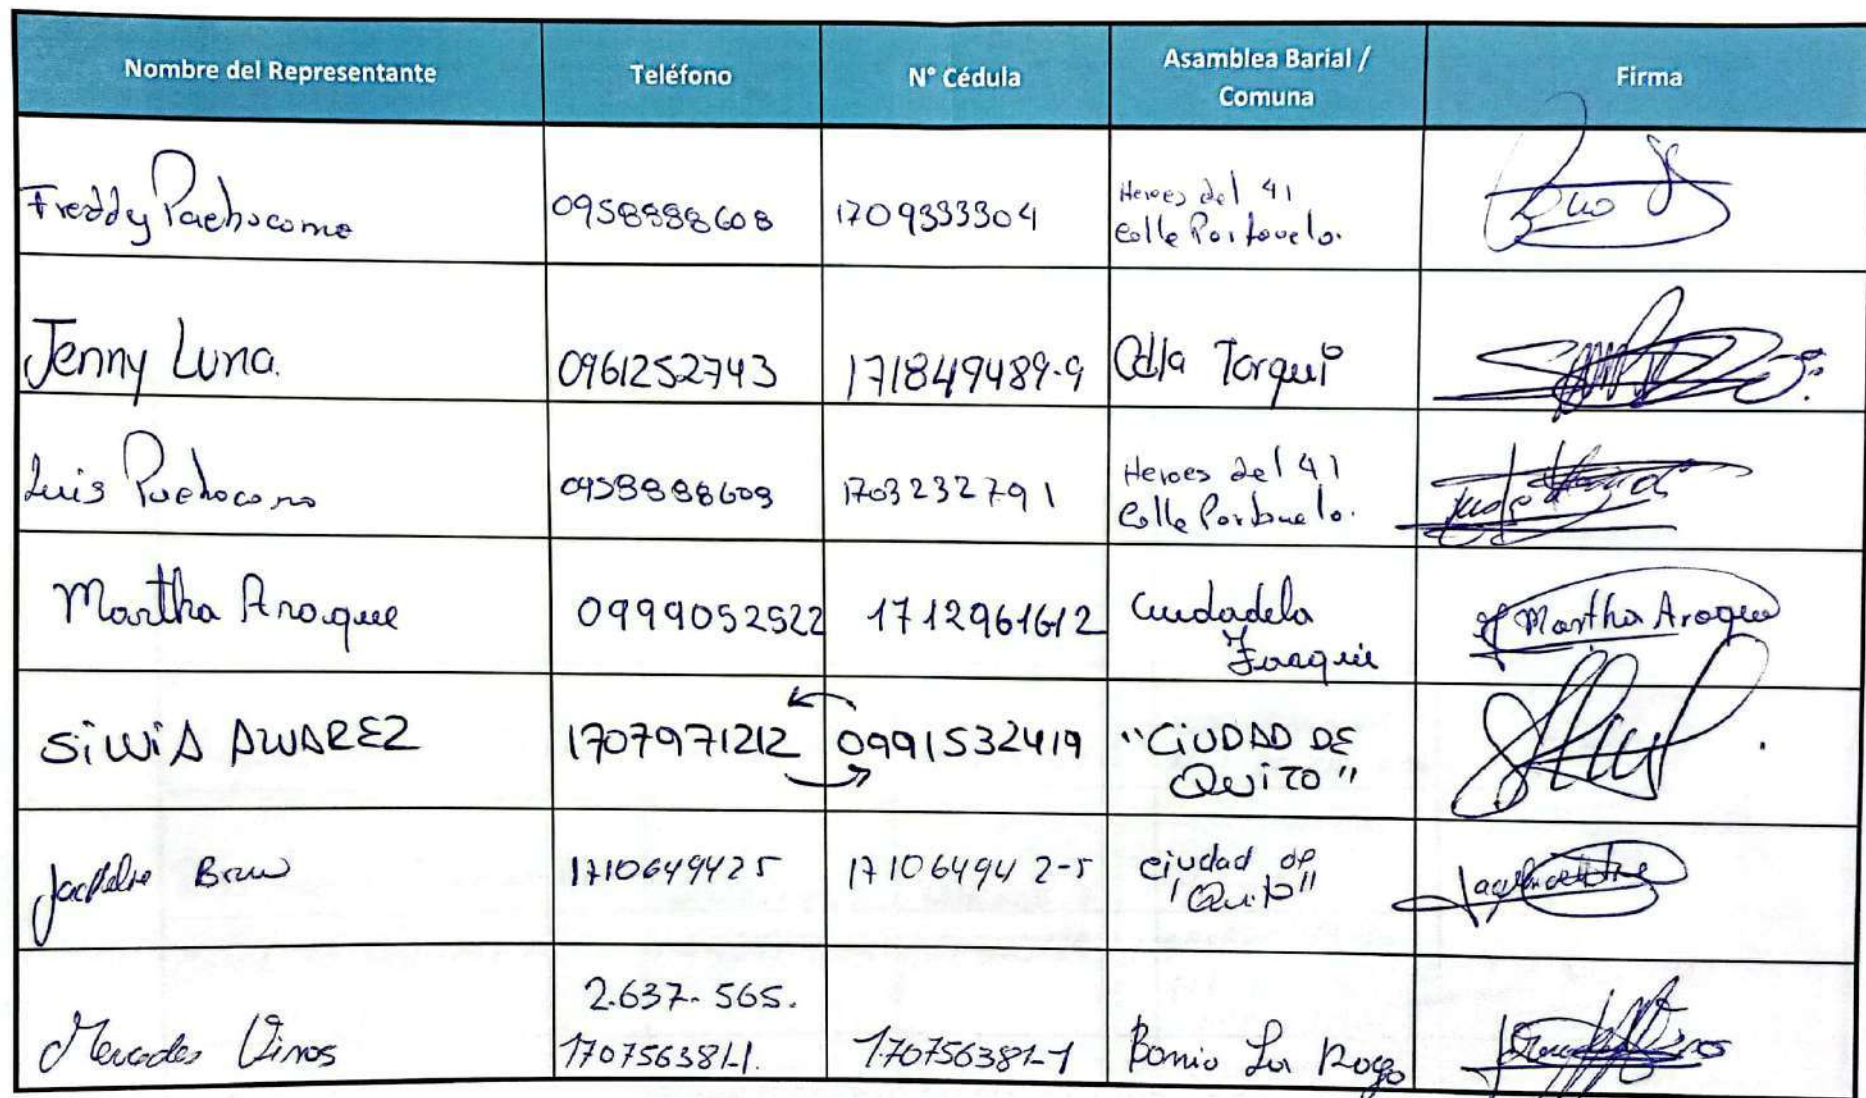 Nombre del Representante
Teléfono
N° Cédula
Asamblea Barial /
Comuna
Firma
Freddy Pachocome
0958888608
1709333304
Heroes del 41
Calle Portovelo.
Jenny Luna.
0961252743
171849489-9
Cdla Tarqui
Luis Pachocoma
0958888609
1703232791
Heroes del 41
Calle Portovelo.
Martha Araque
0999052522
1712961612
Ciudadela
Tarqui
Martha Araque
SILVIA ALVAREZ
1707971212
0991532419
"CIUDAD DE
QUITO"
1710649425
171064942-5
ciudad de
"Quito"
Mercedes Vinos
2.637-565.
170756381-1.
170756381-1
Barrio La Raya